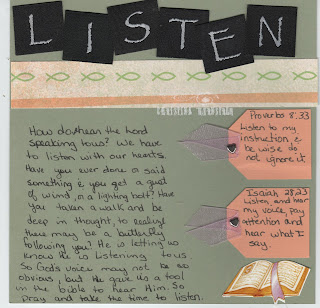 LISTEN
How do hear the Lord
speaking to us? We have
to listen with our hearts.
Have you ever done or said
something & you get a gust
of wind, or a lighting bolt? Have
you taken a walk and be
deep in thought, to realize
there may be a butterfly
following you? He is letting us
know He is Listening to us.
So Gods voice may not be so
obvious, but He gave us a tool
in the bible to hear Him. So
pray and take the time to listen.
Proverbs 8:33
Listen to my
instruction, &
be wise do
not ignore it
Isaiah 28:23
Listen, and hear
my voice, pay
attention and
hear what I
say.